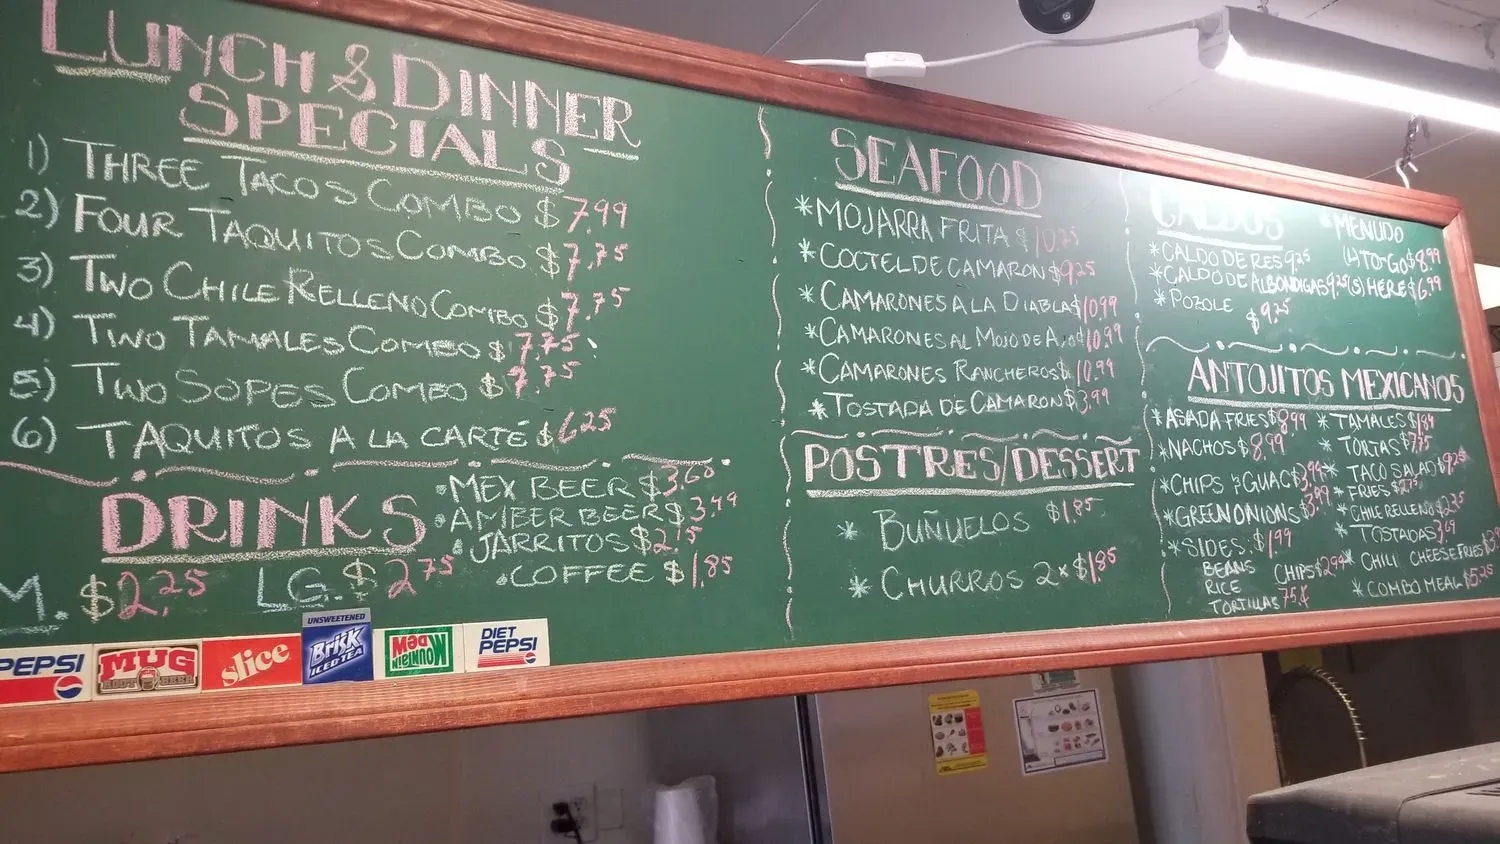 LUNCH & DINNER
SPECIALS
1) THREE TACOS COMBO $7.99
2) FOUR TAQUITOS COMBO $7.75
3) TWO CHILE RELLENO COMBO $7.75
4) TWO TAMALES COMBO $7.75
5) TWO SOPES COMBO $7.75
6) TAQUITOS A LA CARTÉ $6.25
DRINKS
M. $2.25 LG. $2.75
• MEX BEER $3.60
• AMBER BEER $3.49
• JARRITOS $2.15
• COFFEE $1.85
PEPSI
MUG
ROOT BEER
slice
UNSWEETENED
Brisk
ICED TEA
MOUNTAIN
DEW
DIET
PEPSI
SEAFOOD
* MOJARRA FRITA $10.25
* COCTEL DE CAMARON $9.25
* CAMARONES A LA DIABLA $10.99
* CAMARONES AL MOJO DE AJO $10.99
* CAMARONES RANCHEROS $10.99
* TOSTADA DE CAMARON $3.99
POSTRES/DESSERT
* BUÑUELOS $1.85
* CHURROS 2x $1.85
CALDOS
* CALDO DE RES 9.25
* CALDO DE ALBONDIGAS 9.25
* POZOLE $9.25
* MENUDO
(L) TO-GO $8.99
(S) HERE $6.99
ANTOJITOS MEXICANOS
* ASADA FRIES $8.99
* NACHOS $8.99
* CHIPS & GUAC $3.94
* GREEN ONIONS $3.99
* SIDES: $1.99
BEANS
RICE
TORTILLAS 75¢
CHIPS $2.99
* TAMALES $1.84
* TORTAS $7.75
* TACO SALAD $9.25
* FRIES $2.75
* CHILE RELLENO $2.35
* TOSTADAS 3.69
* CHILI CHEESE FRIES
* COMBO MEAL $5.25